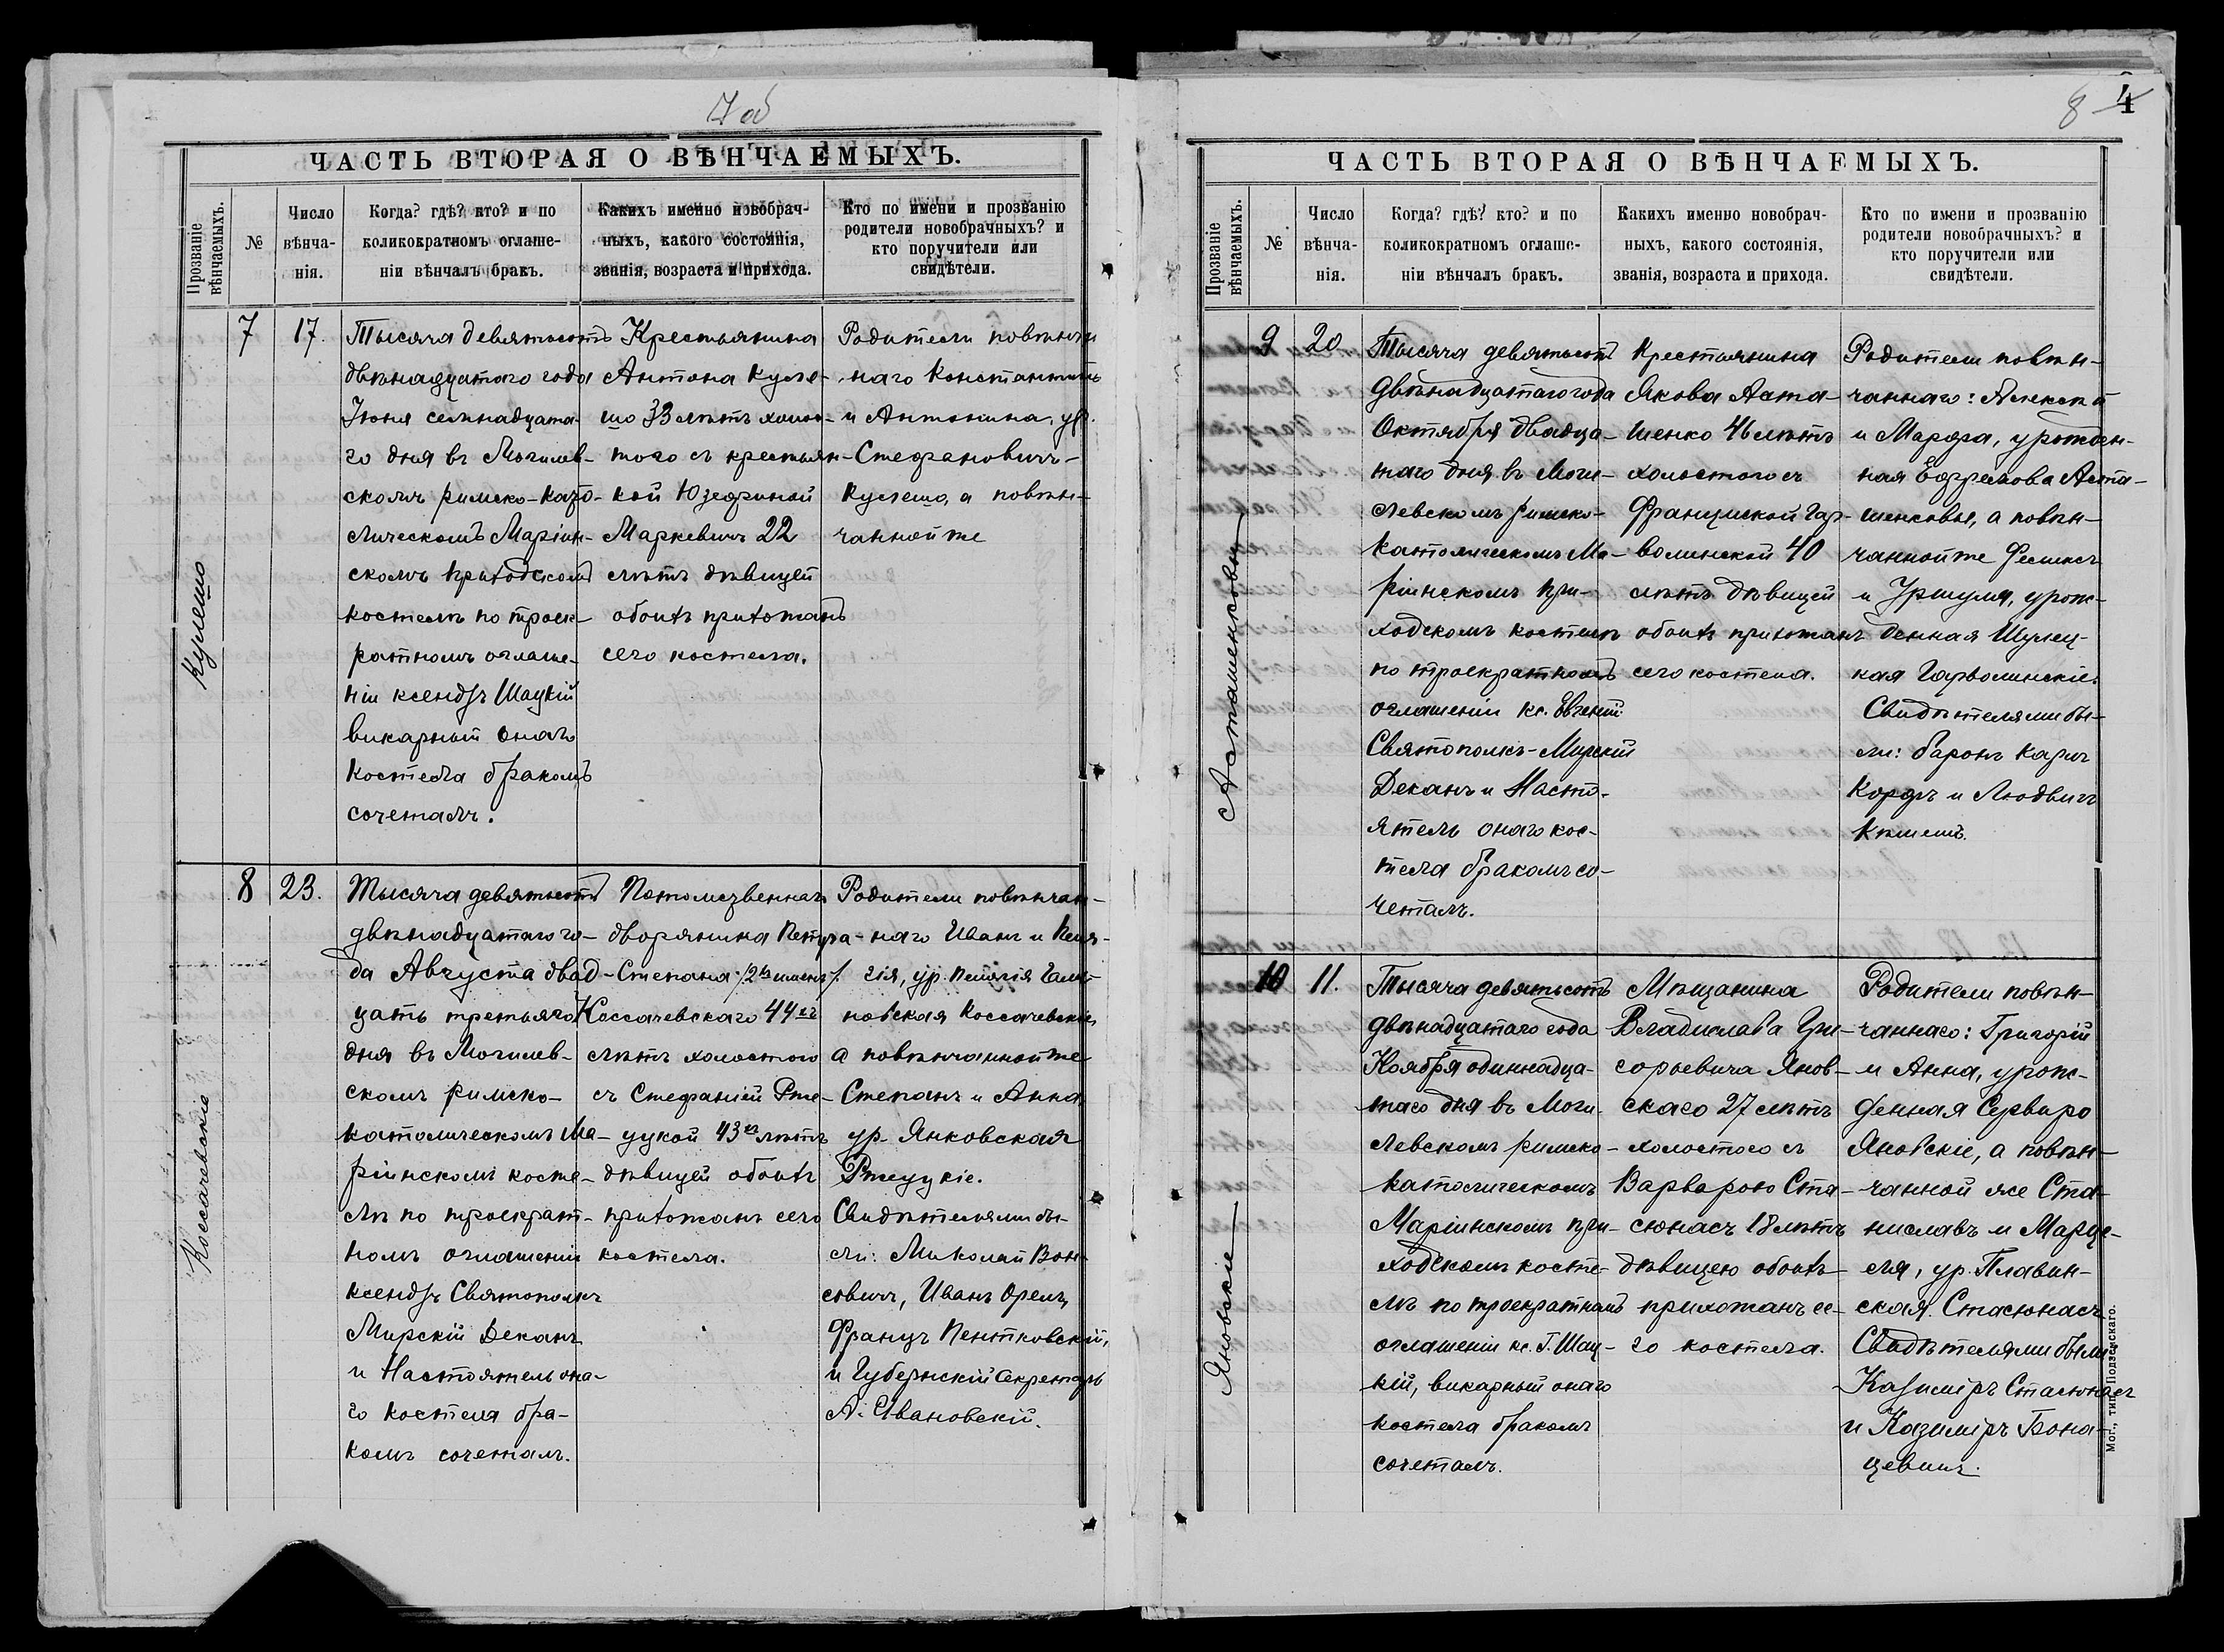 7 об
ЧАСТЬ ВТОРАЯ О ВѢНЧАЕМЫХЪ.
Прозваніе вѣнчаемыхъ.
№
Число
вѣнча-
нія.
Когда? гдѣ? кто? и по
коликократномъ оглаше-
ніи вѣнчалъ бракъ.
Какихъ именно новобрач-
ныхъ, какого состоянія,
званія, возраста и прихода.
Кто по имени и прозванію
родители новобрачныхъ? и
кто поручители или
свидѣтели.
Кулешо
7
17.
Тысяча девятьсотъ
двѣнадцатаго года
Іюня семнадцата-
го дня въ Могилев-
скомъ римско-като-
лическомъ Маріин-
скомъ приходскомъ
костелѣ по троек-
ратномъ оглаше-
ніи ксендзъ Шацкій
викарный онаго
костела бракомъ
сочеталъ.
Крестьянина
Антона Куле-
шо 33 лѣтъ холос-
того съ крестьян-
кой Юзефиной
Маркевичъ 22
лѣтъ дѣвицей
обоихъ прихожанъ
сего костела.
Родители повѣнчан
наго Константинъ
и Антонина, ур.
Стефановичъ-
Кулешо, а повѣн-
чанной же
Коссачевскіе
8
23.
Тысяча девятьсотъ
двѣнадцатаго го-
да Августа двад-
цать третьяго
дня въ Могилев-
скомъ римско-
католическомъ Ма-
ріинскомъ косте-
лѣ по троекрат-
номъ оглашеніи
ксендзъ Святополкъ
Мирскій Деканъ
и Настоятель она-
го костела бра-
комъ сочеталъ.
Потомственнаго
дворянина Петра-
Степана /2хъ именъ/
Коссачевскаго 44хъ
лѣтъ холостого
съ Стефаніей Рже-
цукой 43хъ лѣтъ
дѣвицей обоихъ
прихожанъ сего
костела.
Родители повѣнчан-
наго Иванъ и Пела-
гія, ур. Пелагія
новская Коссачевскіе,
а повѣнчанной же
Степанъ и Анна
ур. Янковская
Ржецукіе.
Свидѣтелями бы-
ли: Миколай Вон-
совичъ, Иванъ Орелъ,
Францъ Пентковскій,
и Губернскій Секретарь
А. Ивановскій.
8 4
ЧАСТЬ ВТОРАЯ О ВѢНЧАЕМЫХЪ.
Прозваніе вѣнчаемыхъ.
№
Число
вѣнча-
нія.
Когда? гдѣ? кто? и по
коликократномъ оглаше-
ніи вѣнчалъ бракъ.
Какихъ именно новобрач-
ныхъ, какого состоянія,
званія, возраста и прихода.
Кто по имени и прозванію
родители новобрачныхъ? и
кто поручители или
свидѣтели.
Асташенковы
9
20
Тысяча девятьсотъ
двѣнадцатаго года
Октября двадца-
таго дня въ Моги-
левскомъ римско-
католическомъ Ма-
ріинскомъ при-
ходскомъ костелѣ
по троекратномъ
оглашеніи кс. Евгеній
Святополкъ-Мирскій
Деканъ и Насто-
ятель онаго кос-
тела бракомъ со-
четалъ.
Крестьянина
Якова Аста-
шенко 46 лѣтъ
холостого съ
Францишкой Гар-
волинской 40
лѣтъ дѣвицей
обоихъ прихожанъ
сего костела.
Родители повѣн-
чаннаго: Алексѣй
и Марфа, урожден-
ная Ефремова Аста-
шенковы, а повѣн-
чанной же Феликсъ
и Уршуля, урож-
денная Шулец-
кая Гарволинскіе.
Свидѣтелями бы-
ли: баронъ Карлъ
Корфъ и Людвигъ
Яновскіе
10
11.
Тысяча девятьсотъ
двѣнадцатаго года
Ноября одиннадца-
таго дня въ Моги-
левскомъ римско-
католическомъ
Маріинскомъ при-
ходскомъ косте-
лѣ по троекратномъ
оглашеніи кс. Г. Шац-
кій, викарный онаго
костела бракомъ
сочеталъ.
Мѣщанина
Владислава Гри-
горьевича Янов-
скаго 27 лѣтъ
холостого съ
Варварою Ста-
сюнасъ 18 лѣтъ
дѣвицею обоихъ
прихожанъ се-
го костела.
Родители повѣн-
чаннаго: Григорій
и Анна, урож-
денная Сервиро
Яновскіе, а повѣн-
чанной же Ста-
ниславъ и Марце-
ля, ур. Плавин-
ская Стасюнасъ
Свидѣтелями были
Казиміръ Стасюнасъ
и Казиміръ Бона-
цевичъ.
Мог., тип. Подземскаго.